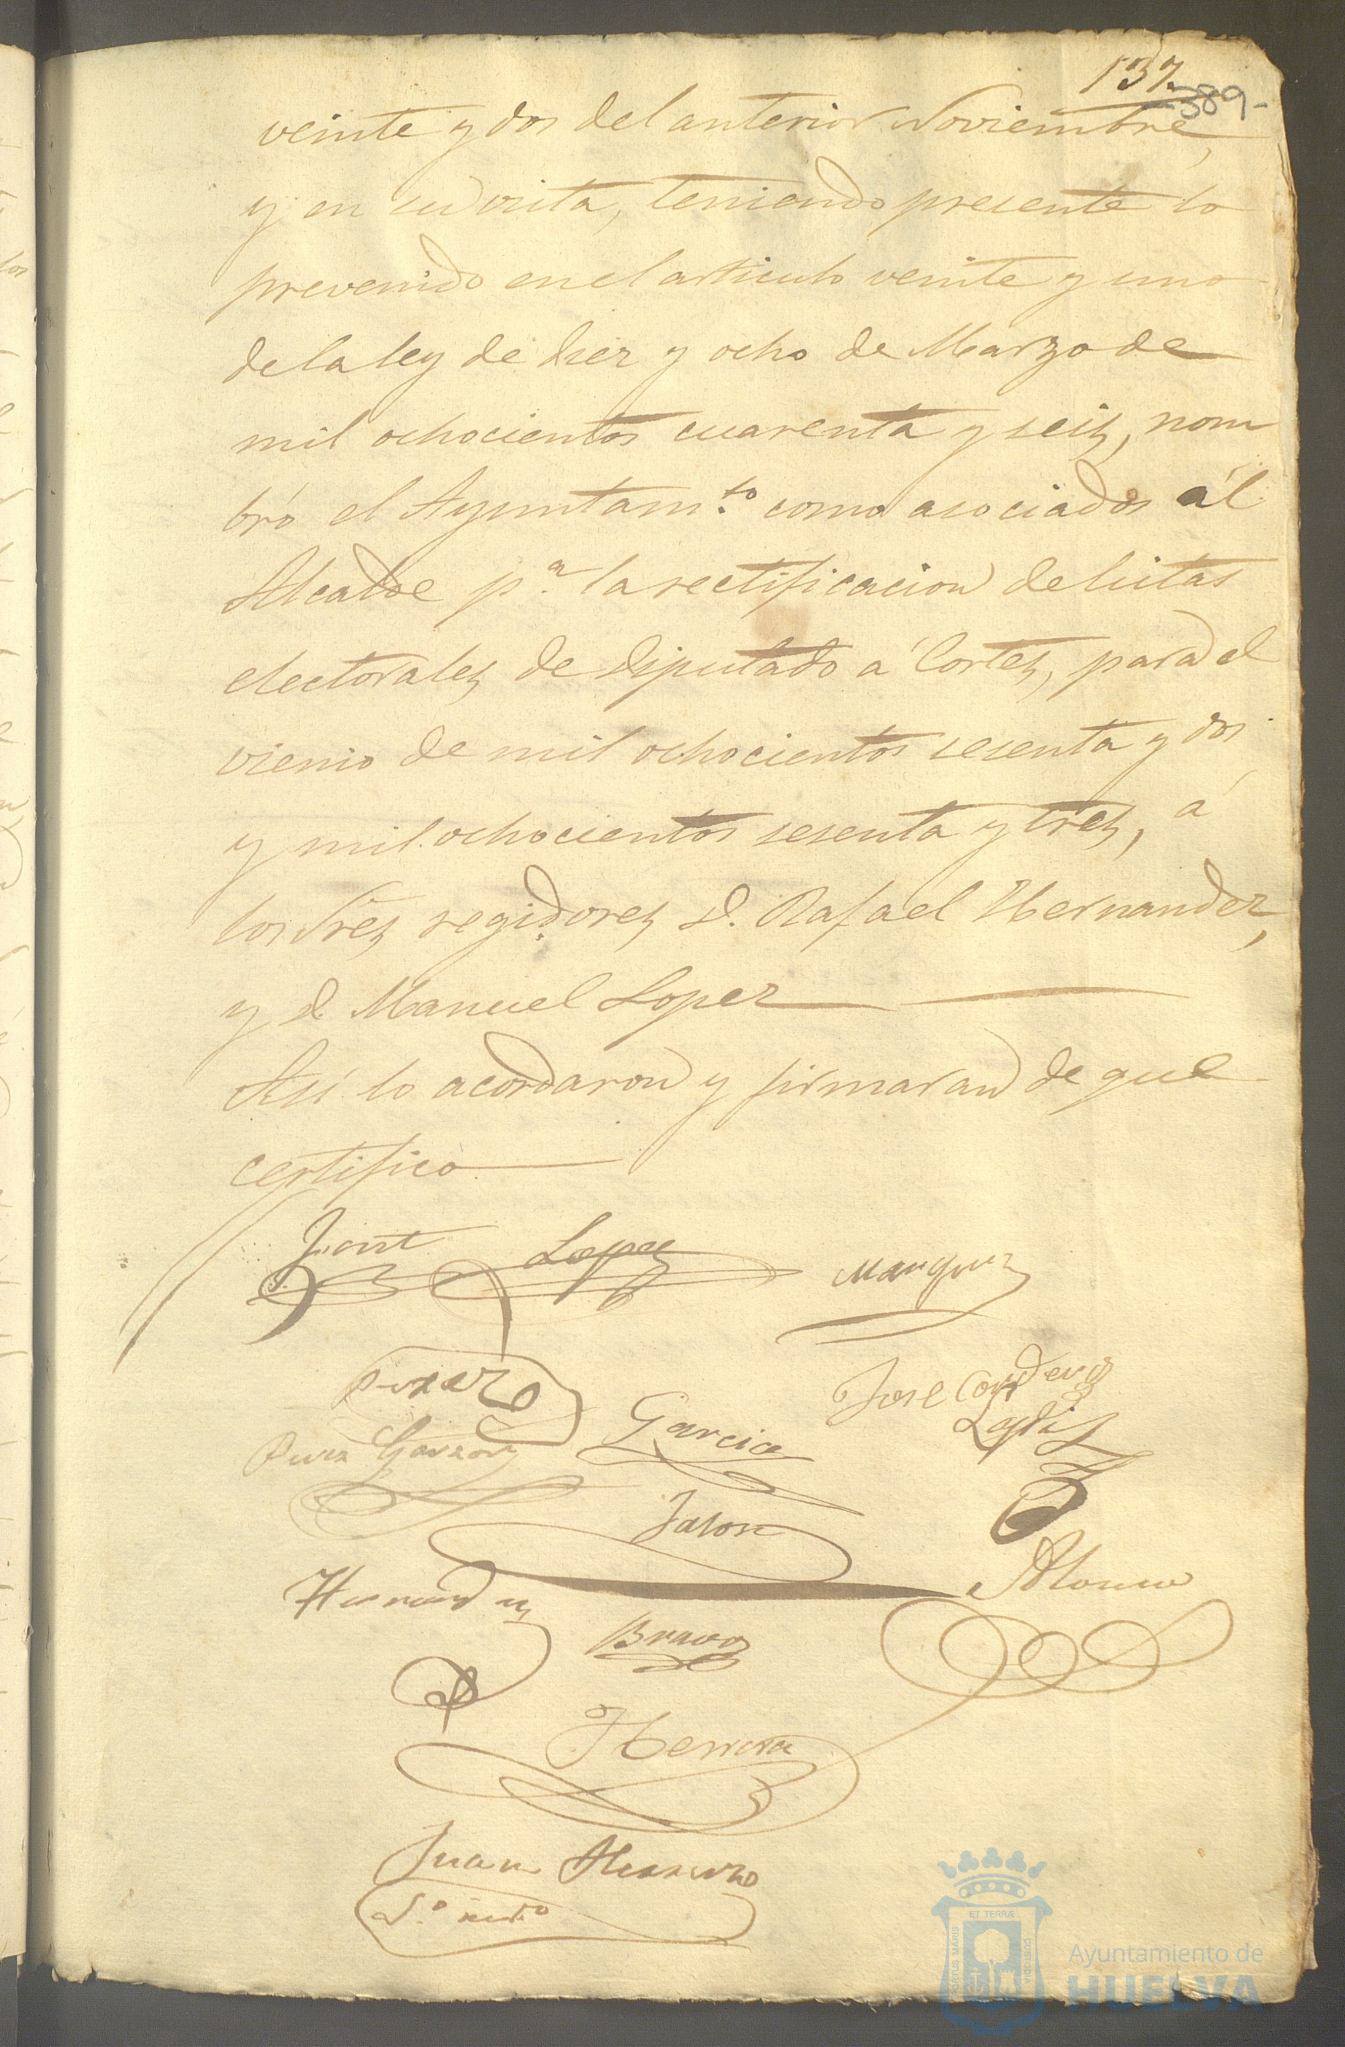 137
-389-
veinte y dos del anterior Noviembre,
y en su vista, teniendo presente lo
prevenido en el articulo veinte y uno
de la ley de diez y ocho de Marzo de
mil ochocientos cuarenta y seis, nom
bró el Ayuntam.to como asociados ál
Alcalde p.a la rectificacion de listas
electorales de Diputado á Cortes, para el
vienio de mil ochocientos sesenta y dos
y mil ochocientos sesenta y tres, á
los Sres regidores D. Rafael Hernandez,
y D Manuel Lopez
Asi lo acordaron y firmaran de que
certifico
Lopez
Marquez
Garcia
Jose
Garzon
Jalon
Hernandez
Alonso
Bravo
Herrera
Juan
S.o
PORTUS MARIS
ET TERRÆ
CUSTODIA
Ayuntamiento de
HUELVA